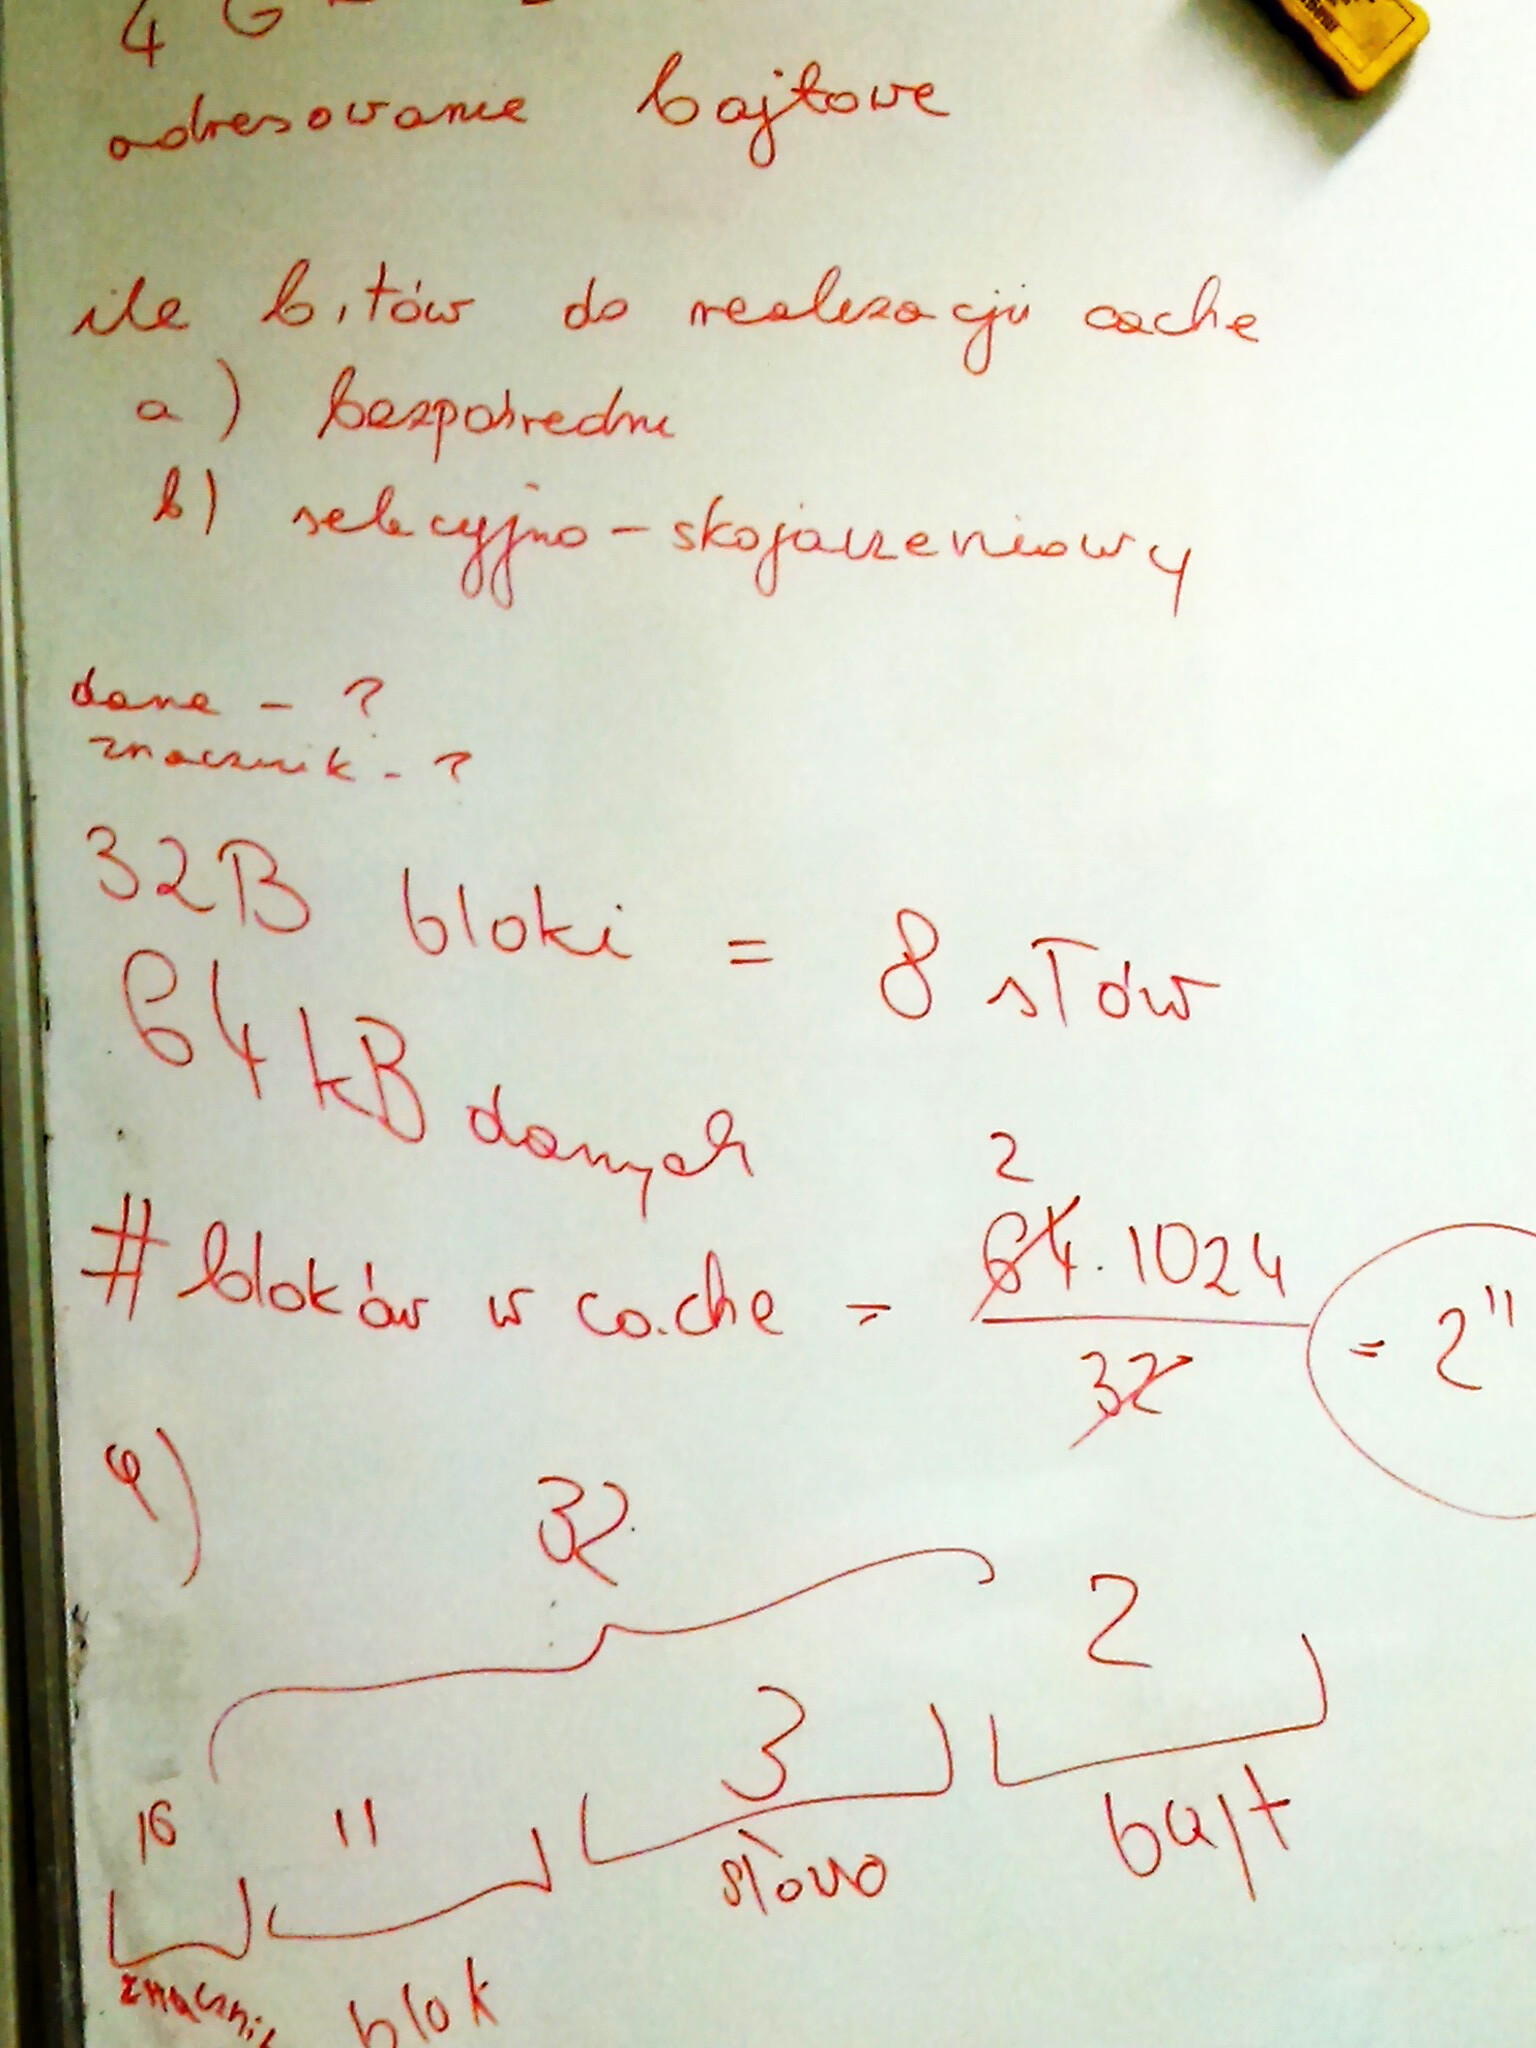 4 G
adresowanie bajtowe
ile bitów do realizacji cache
a) bezpośredni
b) selekcyjno-skojarzeniowy
dane - ?
znacznik - ?
32B bloki = 8 słów
64kB danych
2
#bloków w cache = 64·1024 / 32 = 2^11
a)
32
2
3
16 11
bajt
słowo
znacznik blok